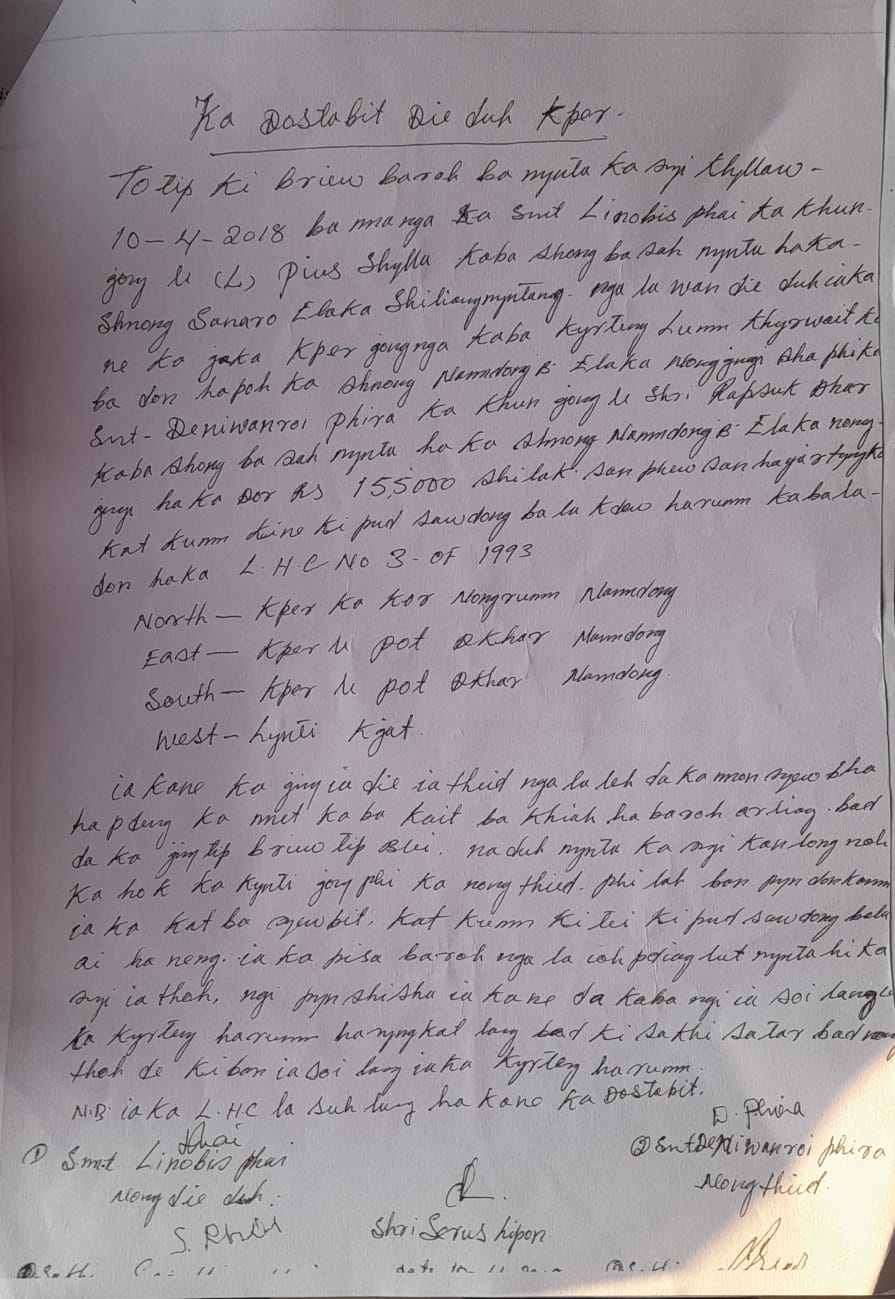 Ka Dostabit Die duh Kper.
To tip ki briew baroh ba mynta ka sngi thyllaw-
10-4-2018 ba ma nga Ka Smt Linobis phai ka Khun-
gong U (L) Pius Shylla kaba shong ba sah mynta haka-
Shnong Sanaro Elaka Shiliangmyntang. nga la wan die duh iaka
ne ka jaka Kper gong nga kaba kyrteng Lumm Khyrwait ka
ba don hapoh ka shnong Namdong B. Elaka Nongjngi sha phi ka
Smt- Deniwanroi Phira ka Khun gong U Shri Rapsuk Dkhar
Kaba shong ba sah mynta ha ka Shnong Namdong B. Elaka nong-
jngi ha ka Dor Rs 155000 shi lak san phew san hajar tyngka
kat kumm kine ki pud sawdong ba la kdew harumm kaba la-
don haka L.H.C No 3- OF 1993.
North - Kper Ka Kor Nongrumm Namdong
East - Kper U pot Dkhar Namdong
South - Kper U pot Dkhar Namdong.
West - Lynti Kjat.
ia kane ka jing ia die ia thied nga la leh da ka mon sngew bha
ha pdeng ka met kaba kait ba khiah ha baroh arliang. bad
da ka jing tip briew tip blei. naduh mynta ka sngi kan long noh
Ka hok ka kynti jong phi ka nong thied. phi lah ban pyndonkamm
ia ka kat ba sngewbit. kat kumm ki tei ki pud sawdong bala
ai ha neng. ia ka pisa baroh nga la ioh pdiang lut mynta hi ka
sngi ia thoh, ngi pynshisha ia kane da kaba ngi ia soi lang
ka kyrteng harumm ha ryngkat lang bad ki sakhi satar bad nong
thoh de ki ban ia soi lang iaka kyrteng harumm.
N.B: iaka L.HC la suh lang ha kane ka Dostabit.
D. Phira
Phai
① Smt Linobis phai
② Smt Deniwanroi phira
Nong die duh.
Nong thied.
Shri Serus Lipon